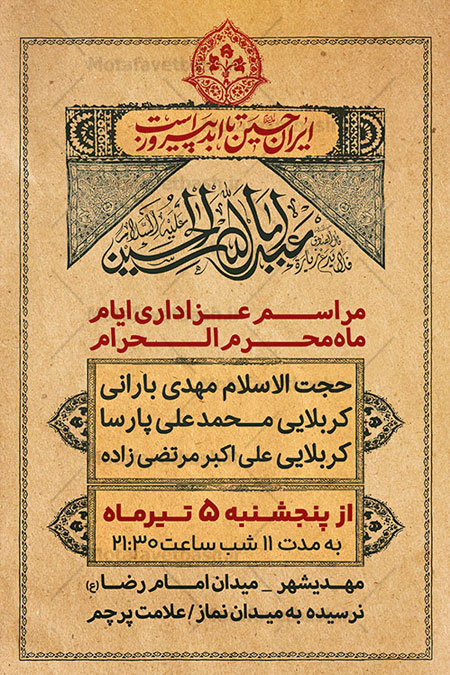 Motafavet
ایران حسین تا ابد پیروز است
ابا عبدالله الحسین
علیه السلام
مراسم عزاداری ایام
ماه محرم الحرام
حجت الاسلام مهدی بارانی
کربلایی محمدعلی پارسا
کربلایی علی اکبر مرتضی زاده
از پنجشنبه ۵ تیرماه
به مدت ۱۱ شب ساعت ۲۱:۳۰
مهدیشهر _ میدان امام رضا (ع)
نرسیده به میدان نماز / علامت پرچم